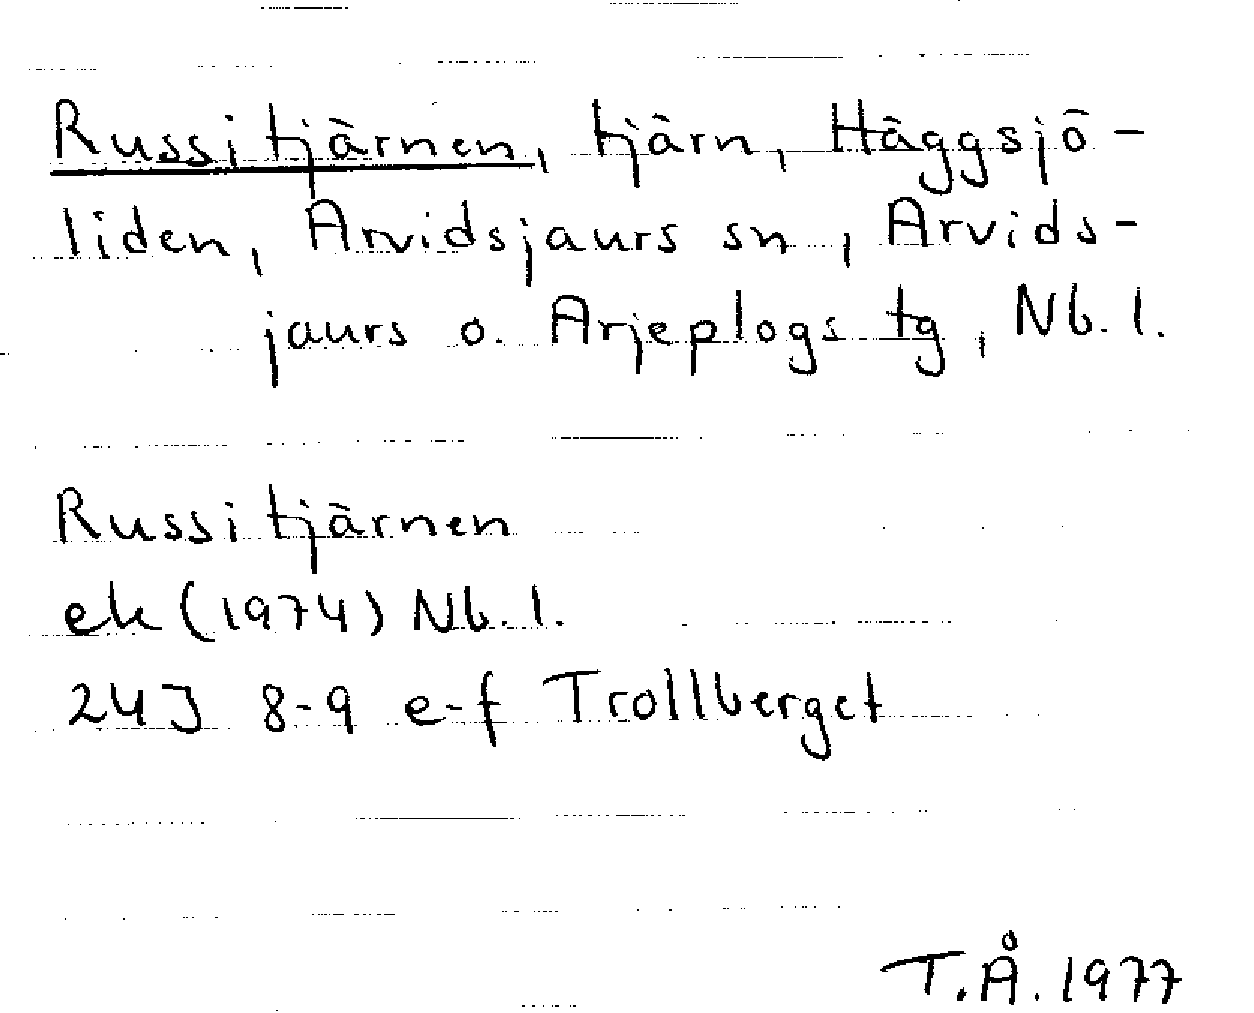 Russitjärnen, tjärn, Häggsjö-
liden, Arvidsjaurs sn, Arvids-
jaurs o. Arjeplogs tg, Nb. l.
Russitjärnen
ek (1974) Nb. l.
24J 8-9 e-f Trollberget
T.Å. 1977